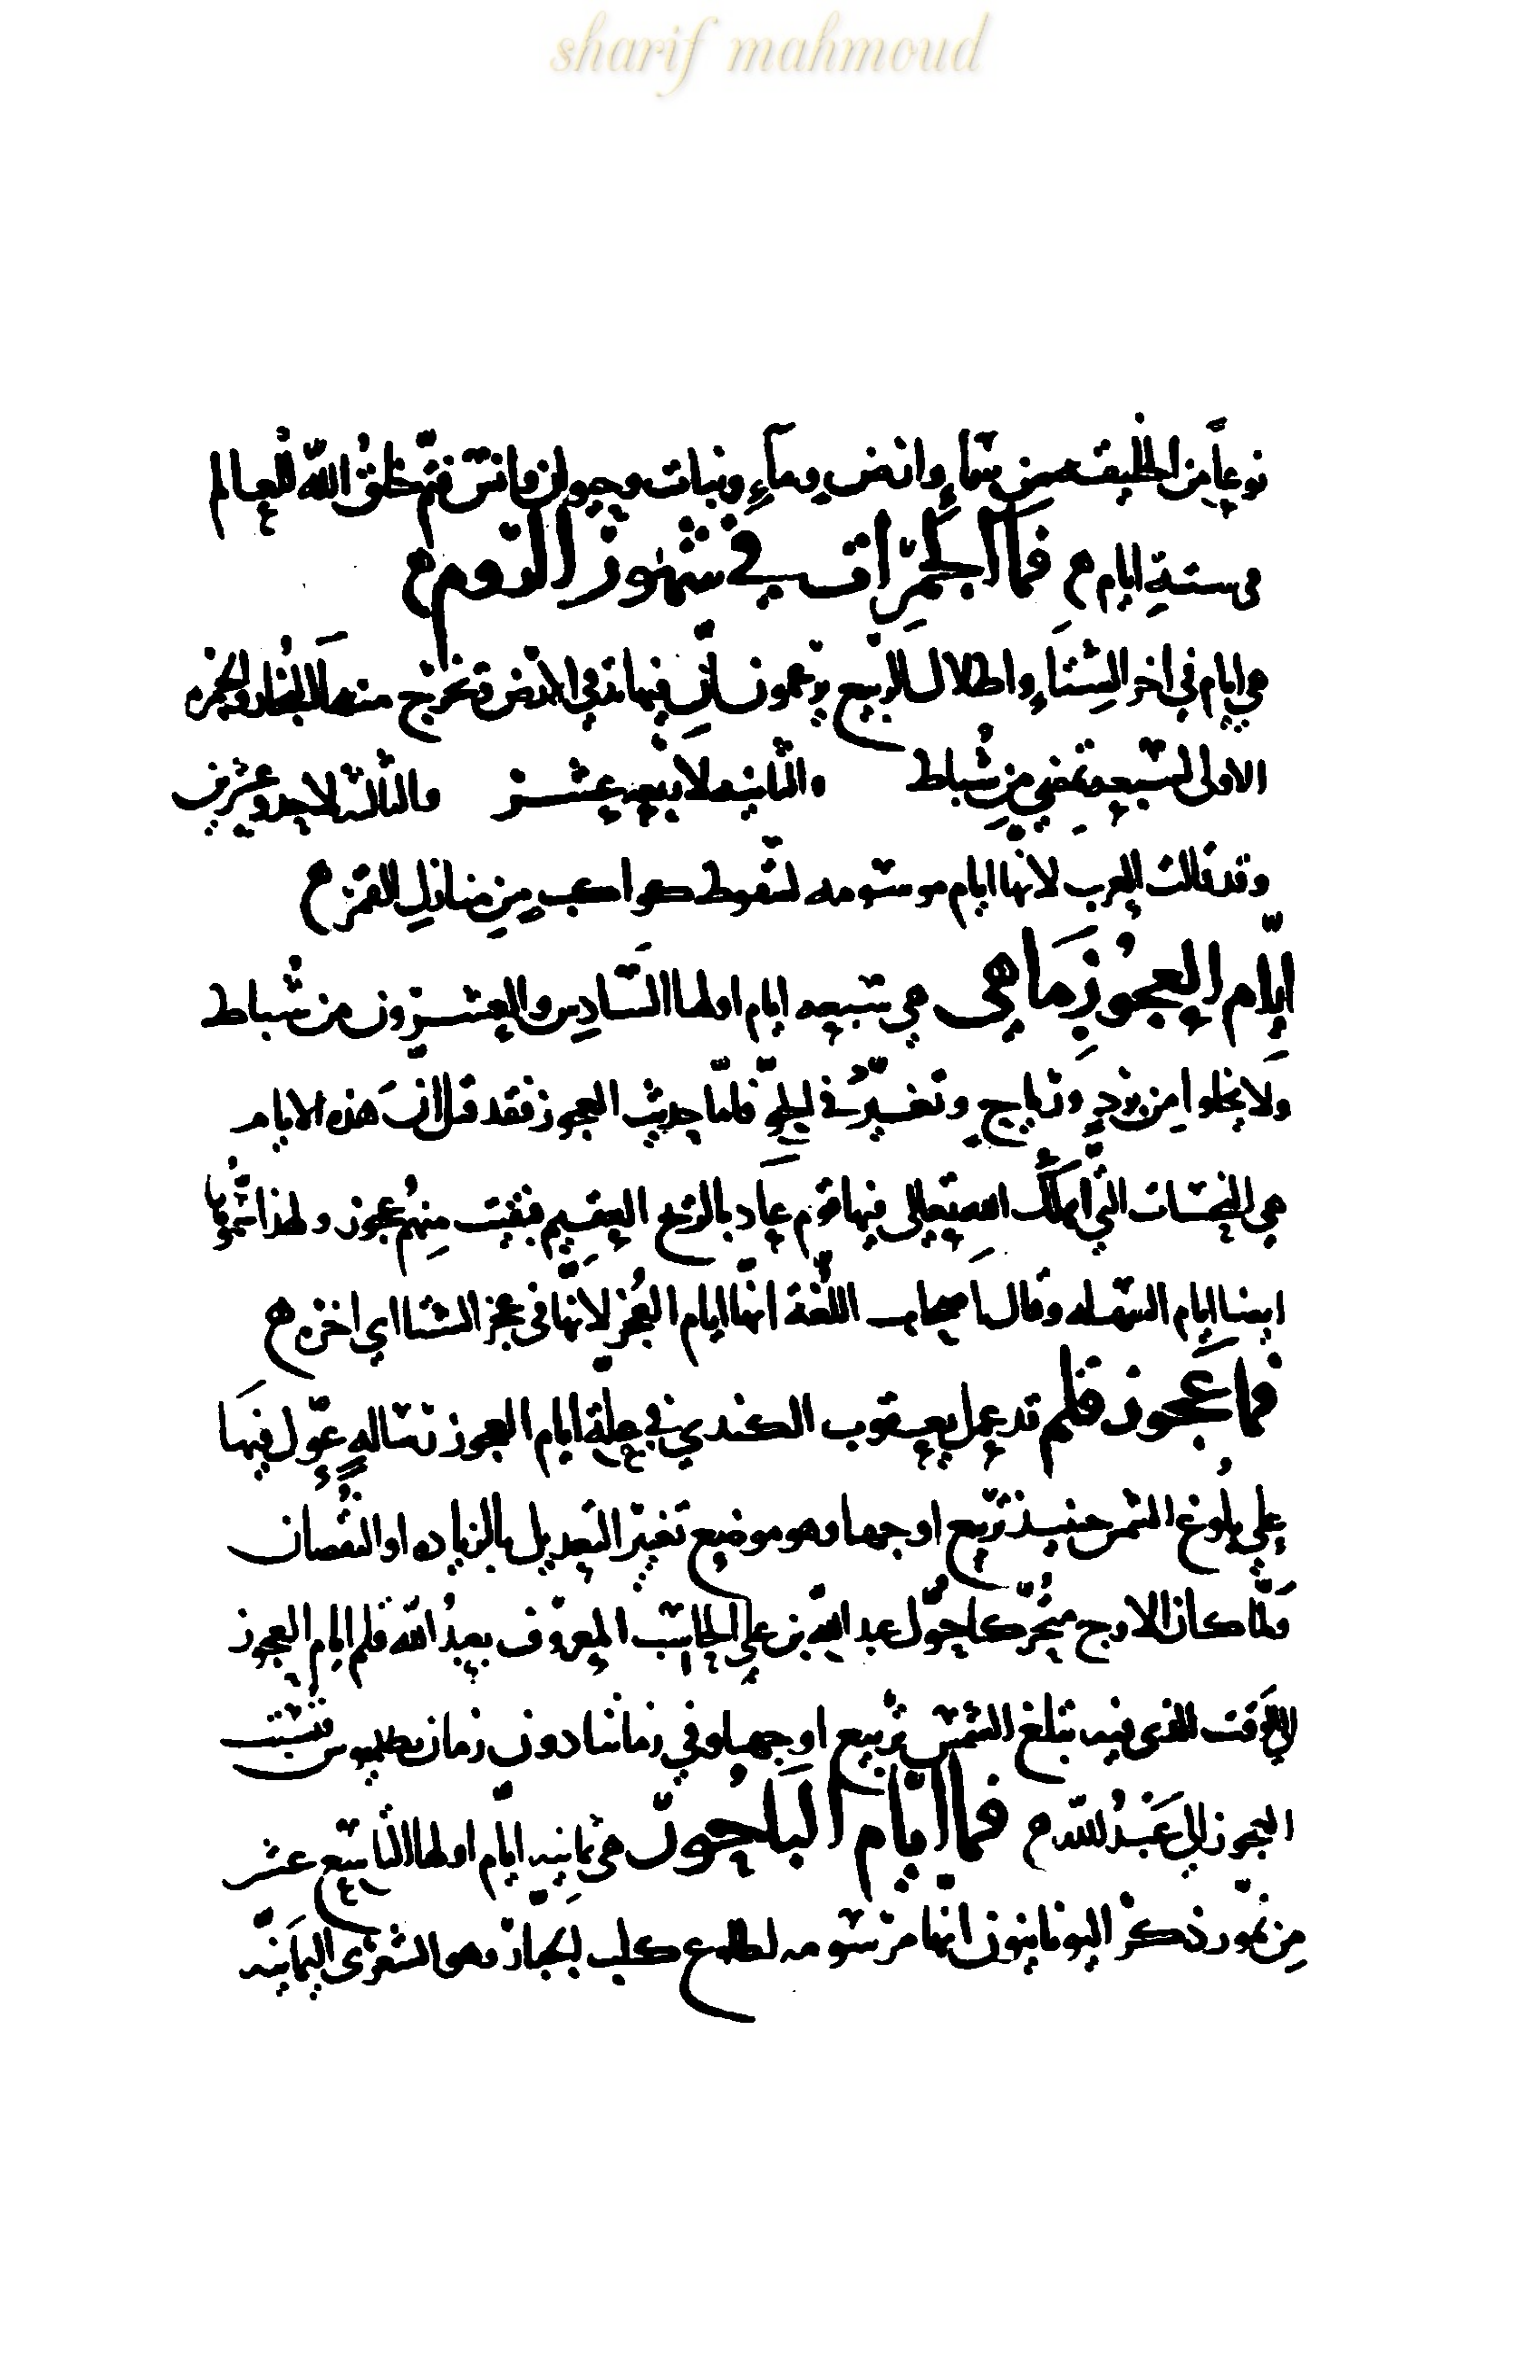 sharif mahmoud
نوعاً من الخليقة من سماءٍ وارض وماءٍ ونبات وحيوان وانس فتم خلق الله للعالم
في ستةِ ايام فما الجمرات في شهور الروم
هي ايام في اخر الشتاءِ واطلال الربيع يزعمون انّ فيها تدفي الارض وتخرج منها البخار والجمره
الاولى لسبعه تمضي من شباط والثانيه لاربعه عشر والثالثه لاحد وعشرين
وقد قالت العرب لانها ايام موسومه لسقوط كواكب من منازل القمر
ايّام العجوز ما هي هي سبعه ايام اولها السّادس والعشرون من شباط
ولا يخلوا من بردٍ ورياح وتغيّرٍ في الجوّ فامّا حديث العجوز فقد قيل ان هذه الايام
هي النحسات التي اهلك الله تعالى فيها قوم عاد بالريح العقيم فبقيت منهم عجوز ولهذا سموها
ايضا ايام وقال اصحاب اللّغة انّها ايام العُجز لانّها في عجز الشتا اي اخره
فما عجوز قلم قد عمل يعقوب الكندي في جملة ايام العجوز رساله عوّل فيها
على بلوغ الشمس حينيذ تربيع اوجها وهو موضع تغيّر التعديل بالزياده او النقصان
ولمّا كان الاوج متحرّكا حوّل عبد الله بن علي الحاسب المعروف بعبد الله قلم ايام العجوز
الى الوقت الذي فيه تبلغ الشمس تربيع اوجها وفي زماننا دون زمان بطلميوس فنسبت
العجوز الى عَبْد الله فما ايّام الباحور هي ثمانيه ايّام اولها التاسع عشر
من تموز وذكر اليونانيون انها مرسومه لطلوع كلب الجبار وهو الشعرى اليمانيّه